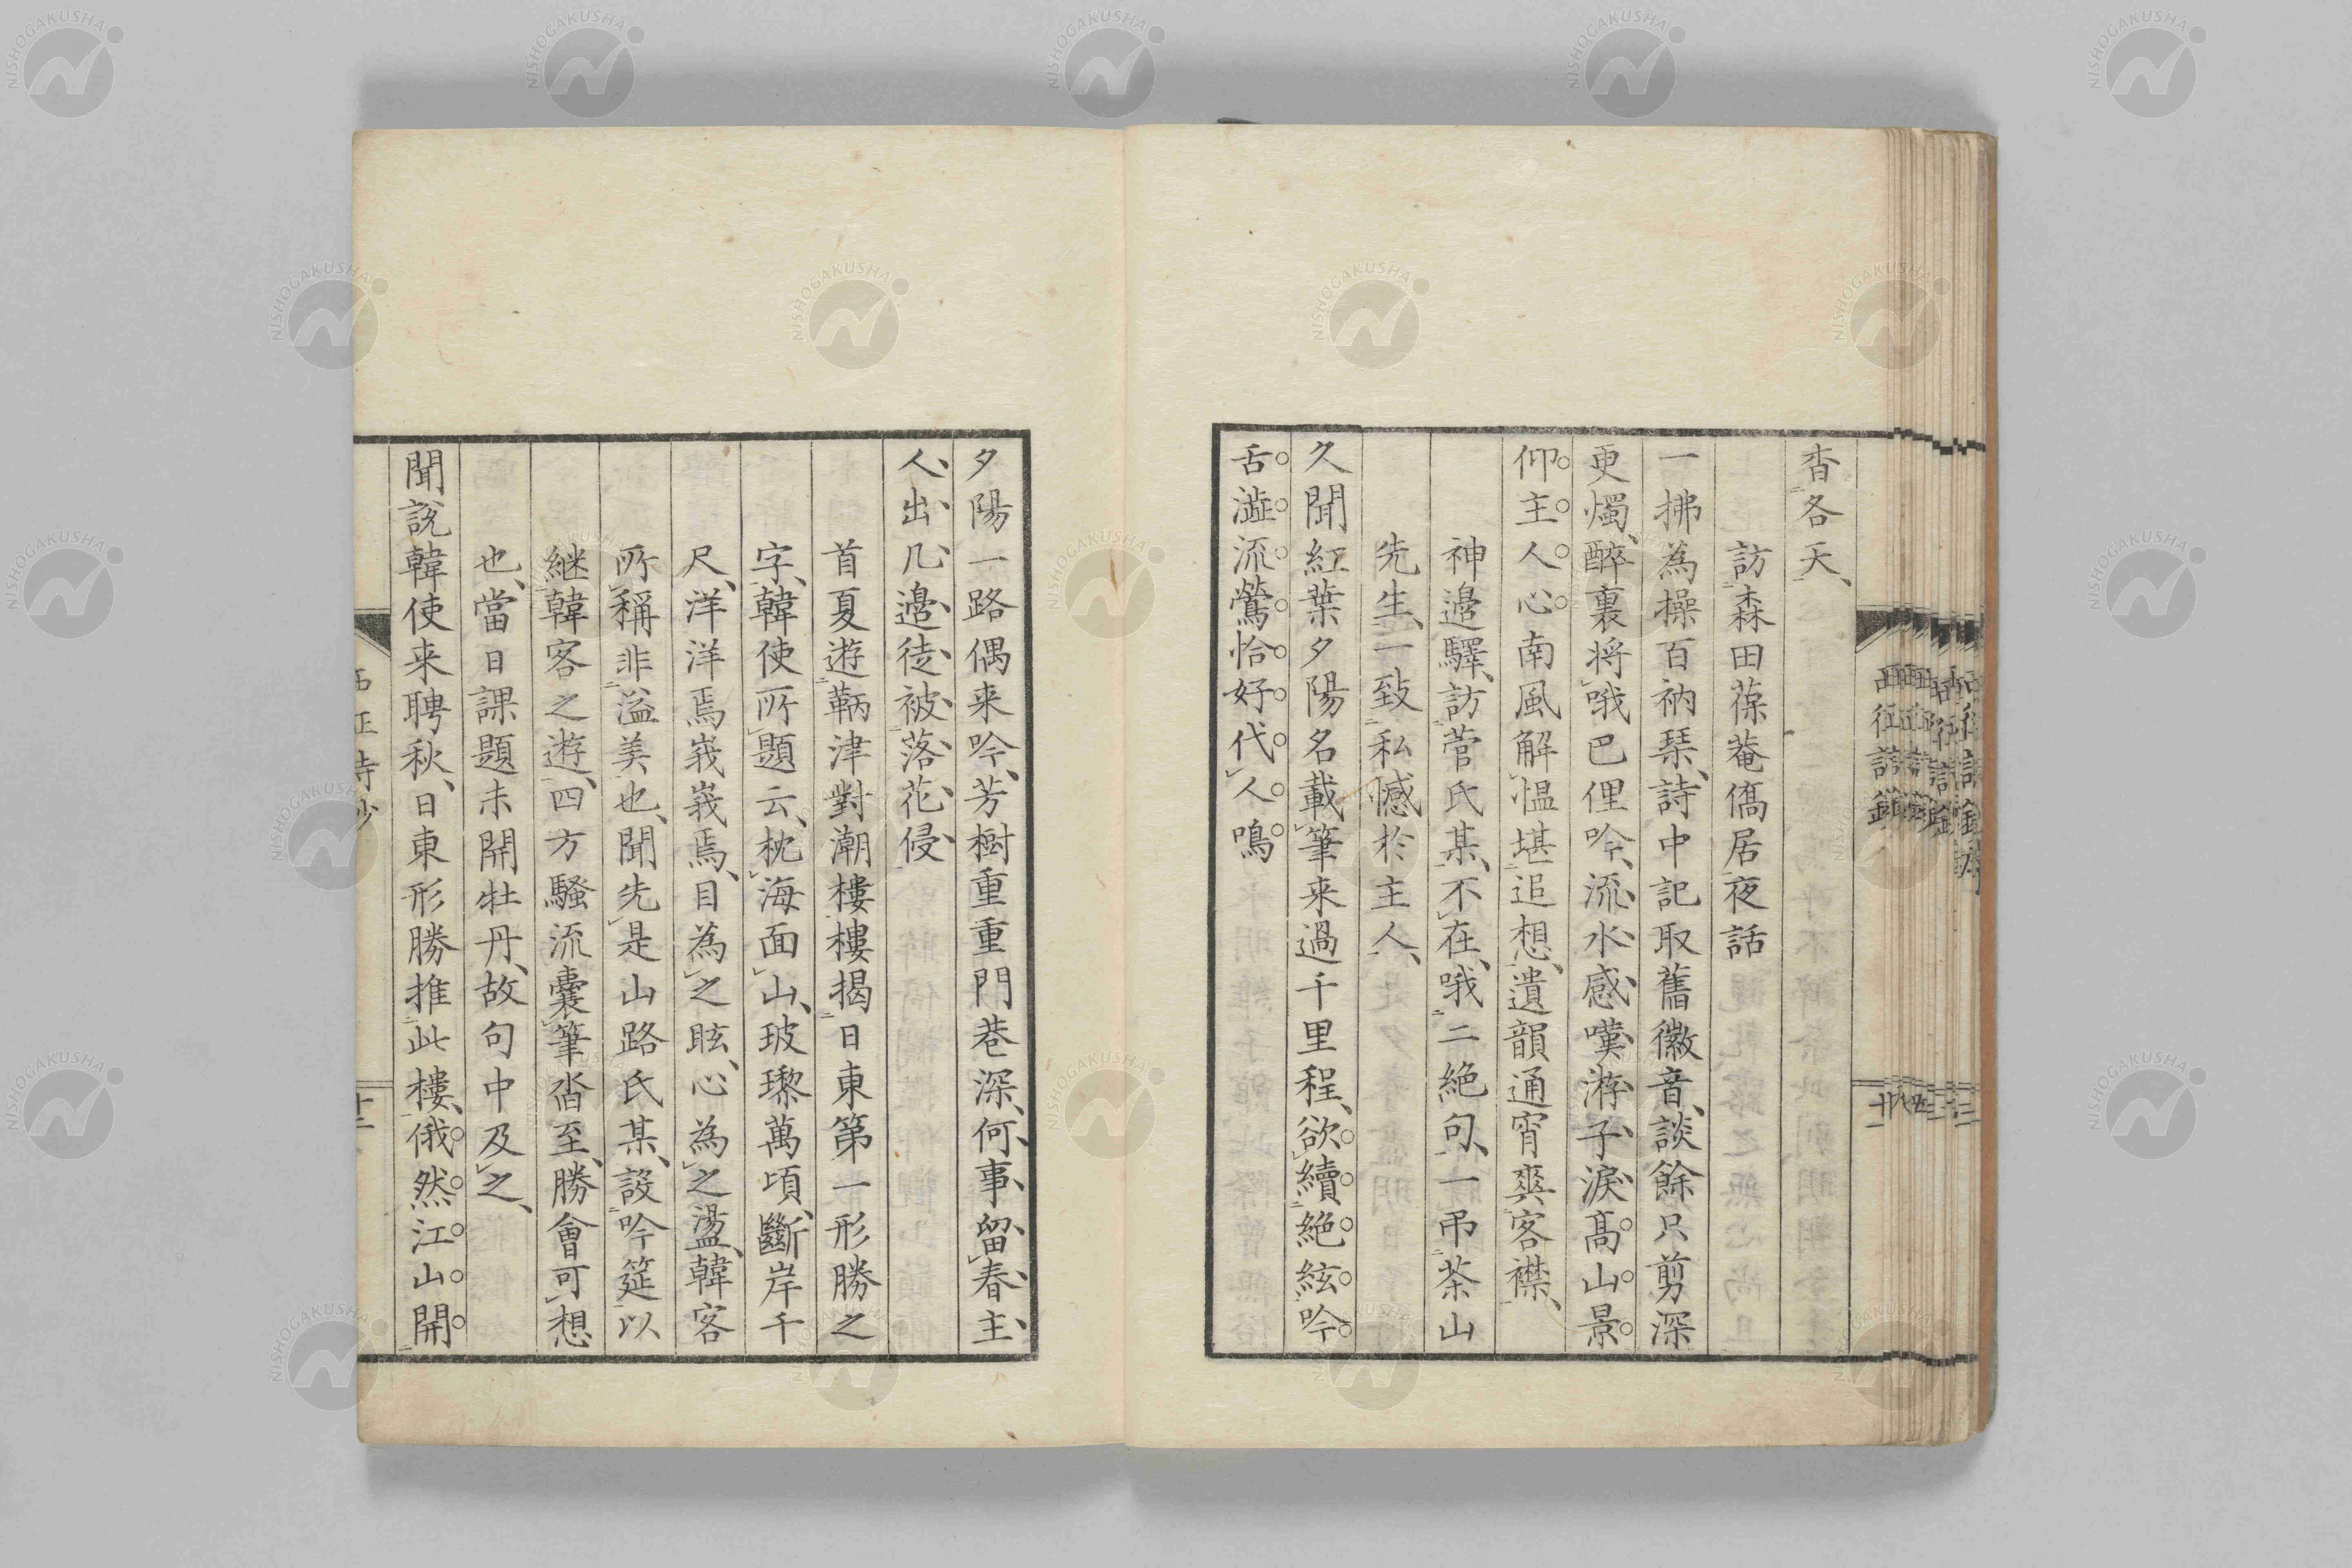 杳各天、
訪森田葆菴僑居夜話
一拂為操百衲琹、詩中記取舊徽音、談餘只剪深
更燭、醉裏将哦巴俚吟、流水感嘆游子淚高山景
仰主人心南風解慍堪追想、遺韻通宵爽客襟、
神邉驛、訪菅氏某、不在、哦二絶句、一吊茶山
先生、一致私憾於主人、
久聞紅葉夕陽名載筆来過千里程、欲續絶絃吟
舌澁流鶯恰好代人鳴
夕陽一路偶来吟、芳樹重重門巷深、何事留春主
人出几邉徒被落花侵
首夏遊鞆津對潮樓樓揭日東第一形勝之
字、韓使所題云、枕海面山、玻瓈萬頃、斷岸千
尺、洋洋焉峩峩焉、目為之眩、心為之盪、韓客
所稱非溢美也、聞先是山路氏某、設吟筵以
継韓客之遊、四方騷流囊筆沓至、勝會可想
也、當日課題未開牡丹、故句中及之、
聞說韓使来聘秋、日東形勝推此樓、俄然江山開
西征詩鈔
十二
NISHOGAKUSHA